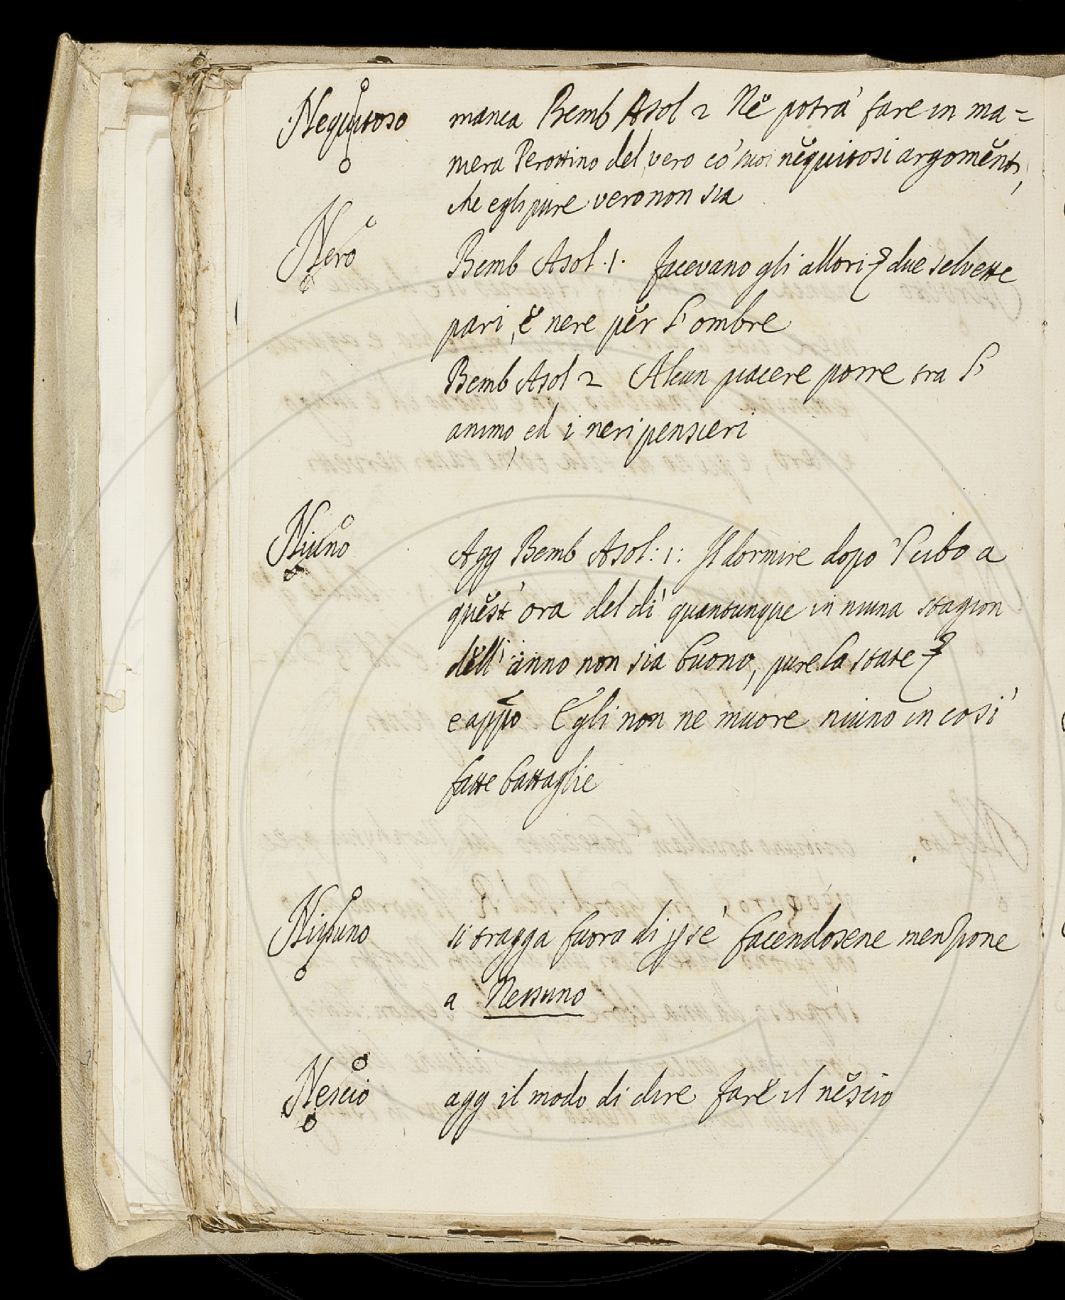 Nequitoso manca Bemb Asol 2 Nè potrà fare in ma=
niera Perottino del vero co' suoi nequitosi argomenti,
che egli pure vero non sia
Nero Bemb Asol. 1. facevano gli allori due selvette
pari, e nere per l'ombre
Bemb Asol 2 Alcun piacere porre tra l'
animo, ed i neri pensieri
Niuno Agg Bemb Asol: 1: Il dormire dopo 'l cibo a
quest' ora del dì quantunque in niuna stagion
dell' anno non sia buono, pure la state
e appo Egli non ne muore niuno in così
fatte battaglie
Nissuno si tragga fuora di p se facendosene menzione
a Nessuno
Nescio agg il modo di dire fare il nescio